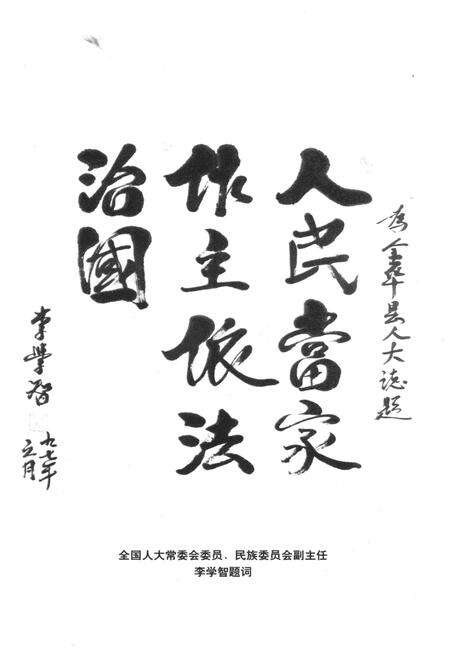 為金華县人大誌题
人民當家
作主依法
治國
李學智
九七年
五月
全国人大常委会委员、民族委员会副主任
李学智题词